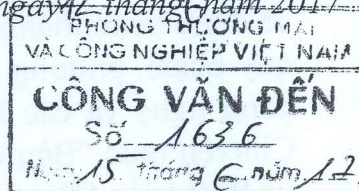 ngày 12 tháng 6 năm 2017
PHÒNG THƯƠNG MẠI
VÀ CÔNG NGHIỆP VIỆT NAM
CÔNG VĂN ĐẾN
Số 1636
Ngày 15 tháng 6 năm 17